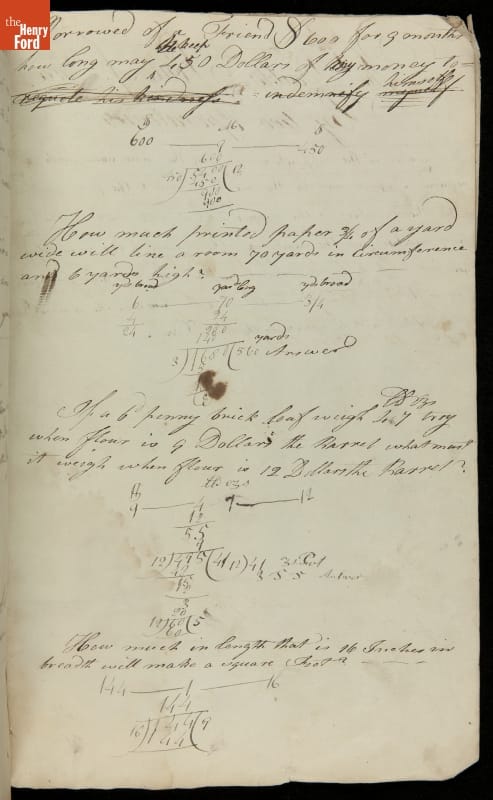 the
Henry
Ford
Borrowed of a Friend $ 600 for 9 months
how long may he keep 450 Dollars of my money to
requite his kindness = indemnify himself myself
$ Mo $
600 9 450
600
450)5400(12
450
900
900
How much printed paper 3/4 of a yard
wide will line a room 70 yards in circumference
and 6 yards high?
yds broad yards long yds broad
6 70 3/4
4 24
24 280
140 yards
3)1680(560 Answer
15
18
18
If a 6 penny brick loaf weigh 4 7 troy
when flour is 9 Dollars the Barrel what must
it weigh when flour is 12 Dollars the Barrel?
9 4 7 12
12
55
9
12)495(41 12)41
48 3 5 5 Answer
15
12
3
20
12)60(5
60
How much in length that is 16 Inches in
breadth will make a square Foot?
144 1 16
144
16)144(9
144